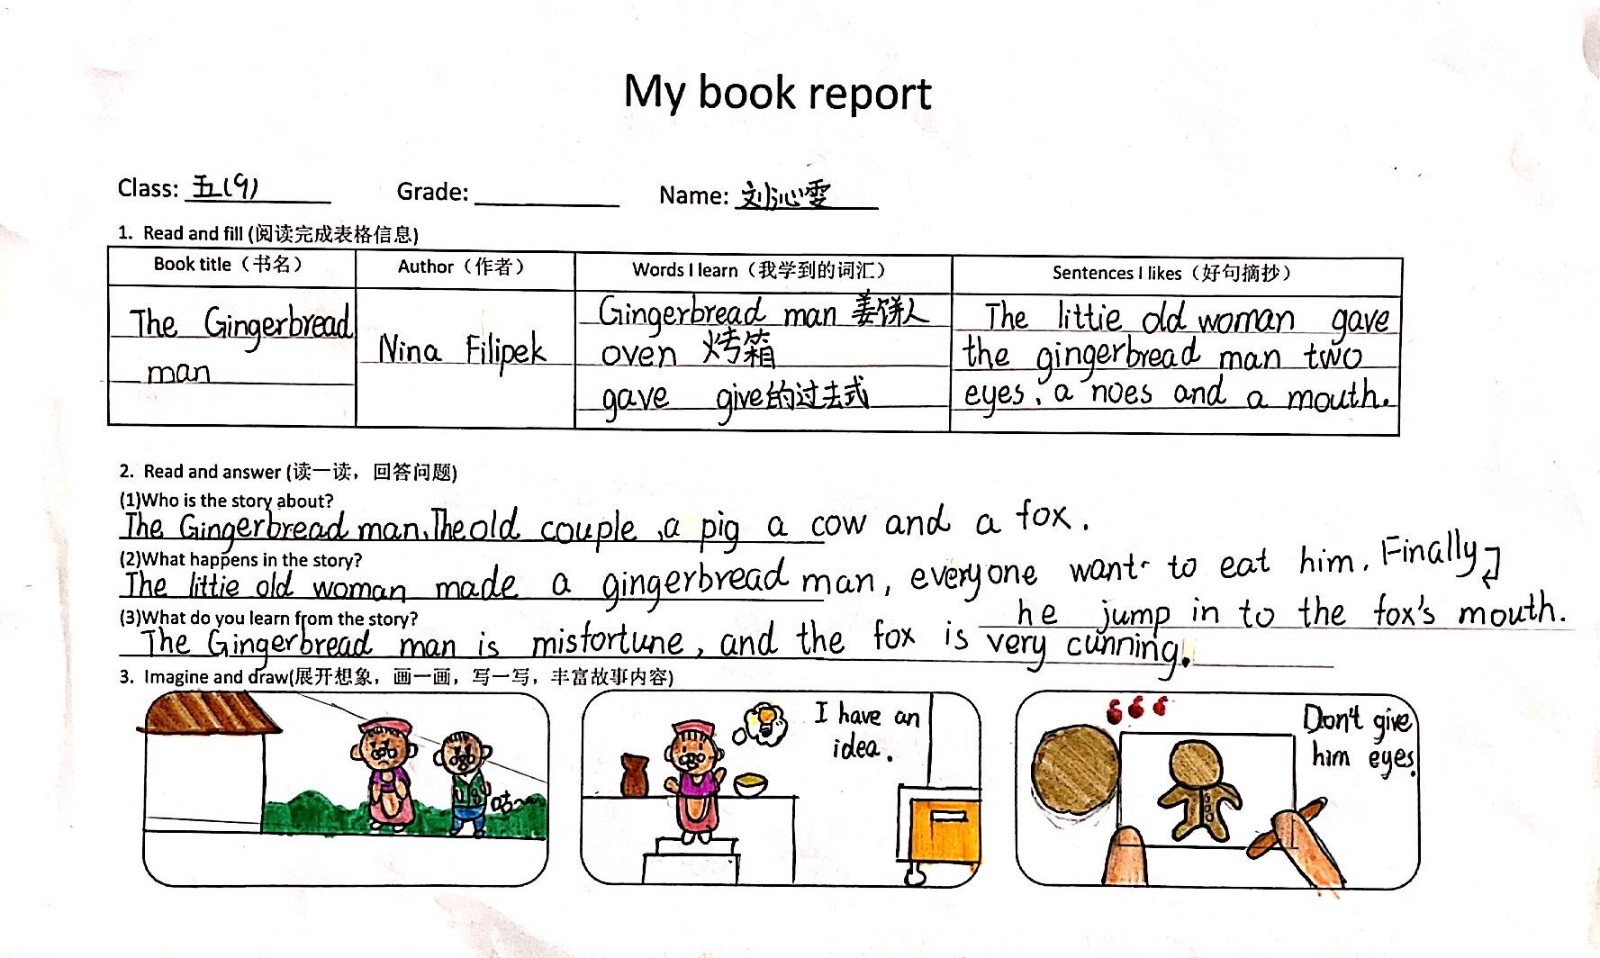 My book report
Class: 五(9) Grade: Name: 刘沁雯
1. Read and fill (阅读完成表格信息)
Book title（书名） Author（作者） Words I learn（我学到的词汇） Sentences I likes（好句摘抄）
The Gingerbread
man
Nina Filipek
Gingerbread man 姜饼人
oven 烤箱
gave give的过去式
The littie old woman gave
the gingerbread man two
eyes、a noes and a mouth.
2. Read and answer (读一读，回答问题)
(1)Who is the story about?
The Gingerbread man、The old couple、a pig a cow and a fox.
(2)What happens in the story?
The littie old woman made a gingerbread man, everyone want to eat him. Finally
he jump in to the fox's mouth.
(3)What do you learn from the story?
The Gingerbread man is misfortune, and the fox is very cunning.
3. Imagine and draw(展开想象，画一画，写一写，丰富故事内容)
咕~
I have an
idea.
Don't give
him eyes.